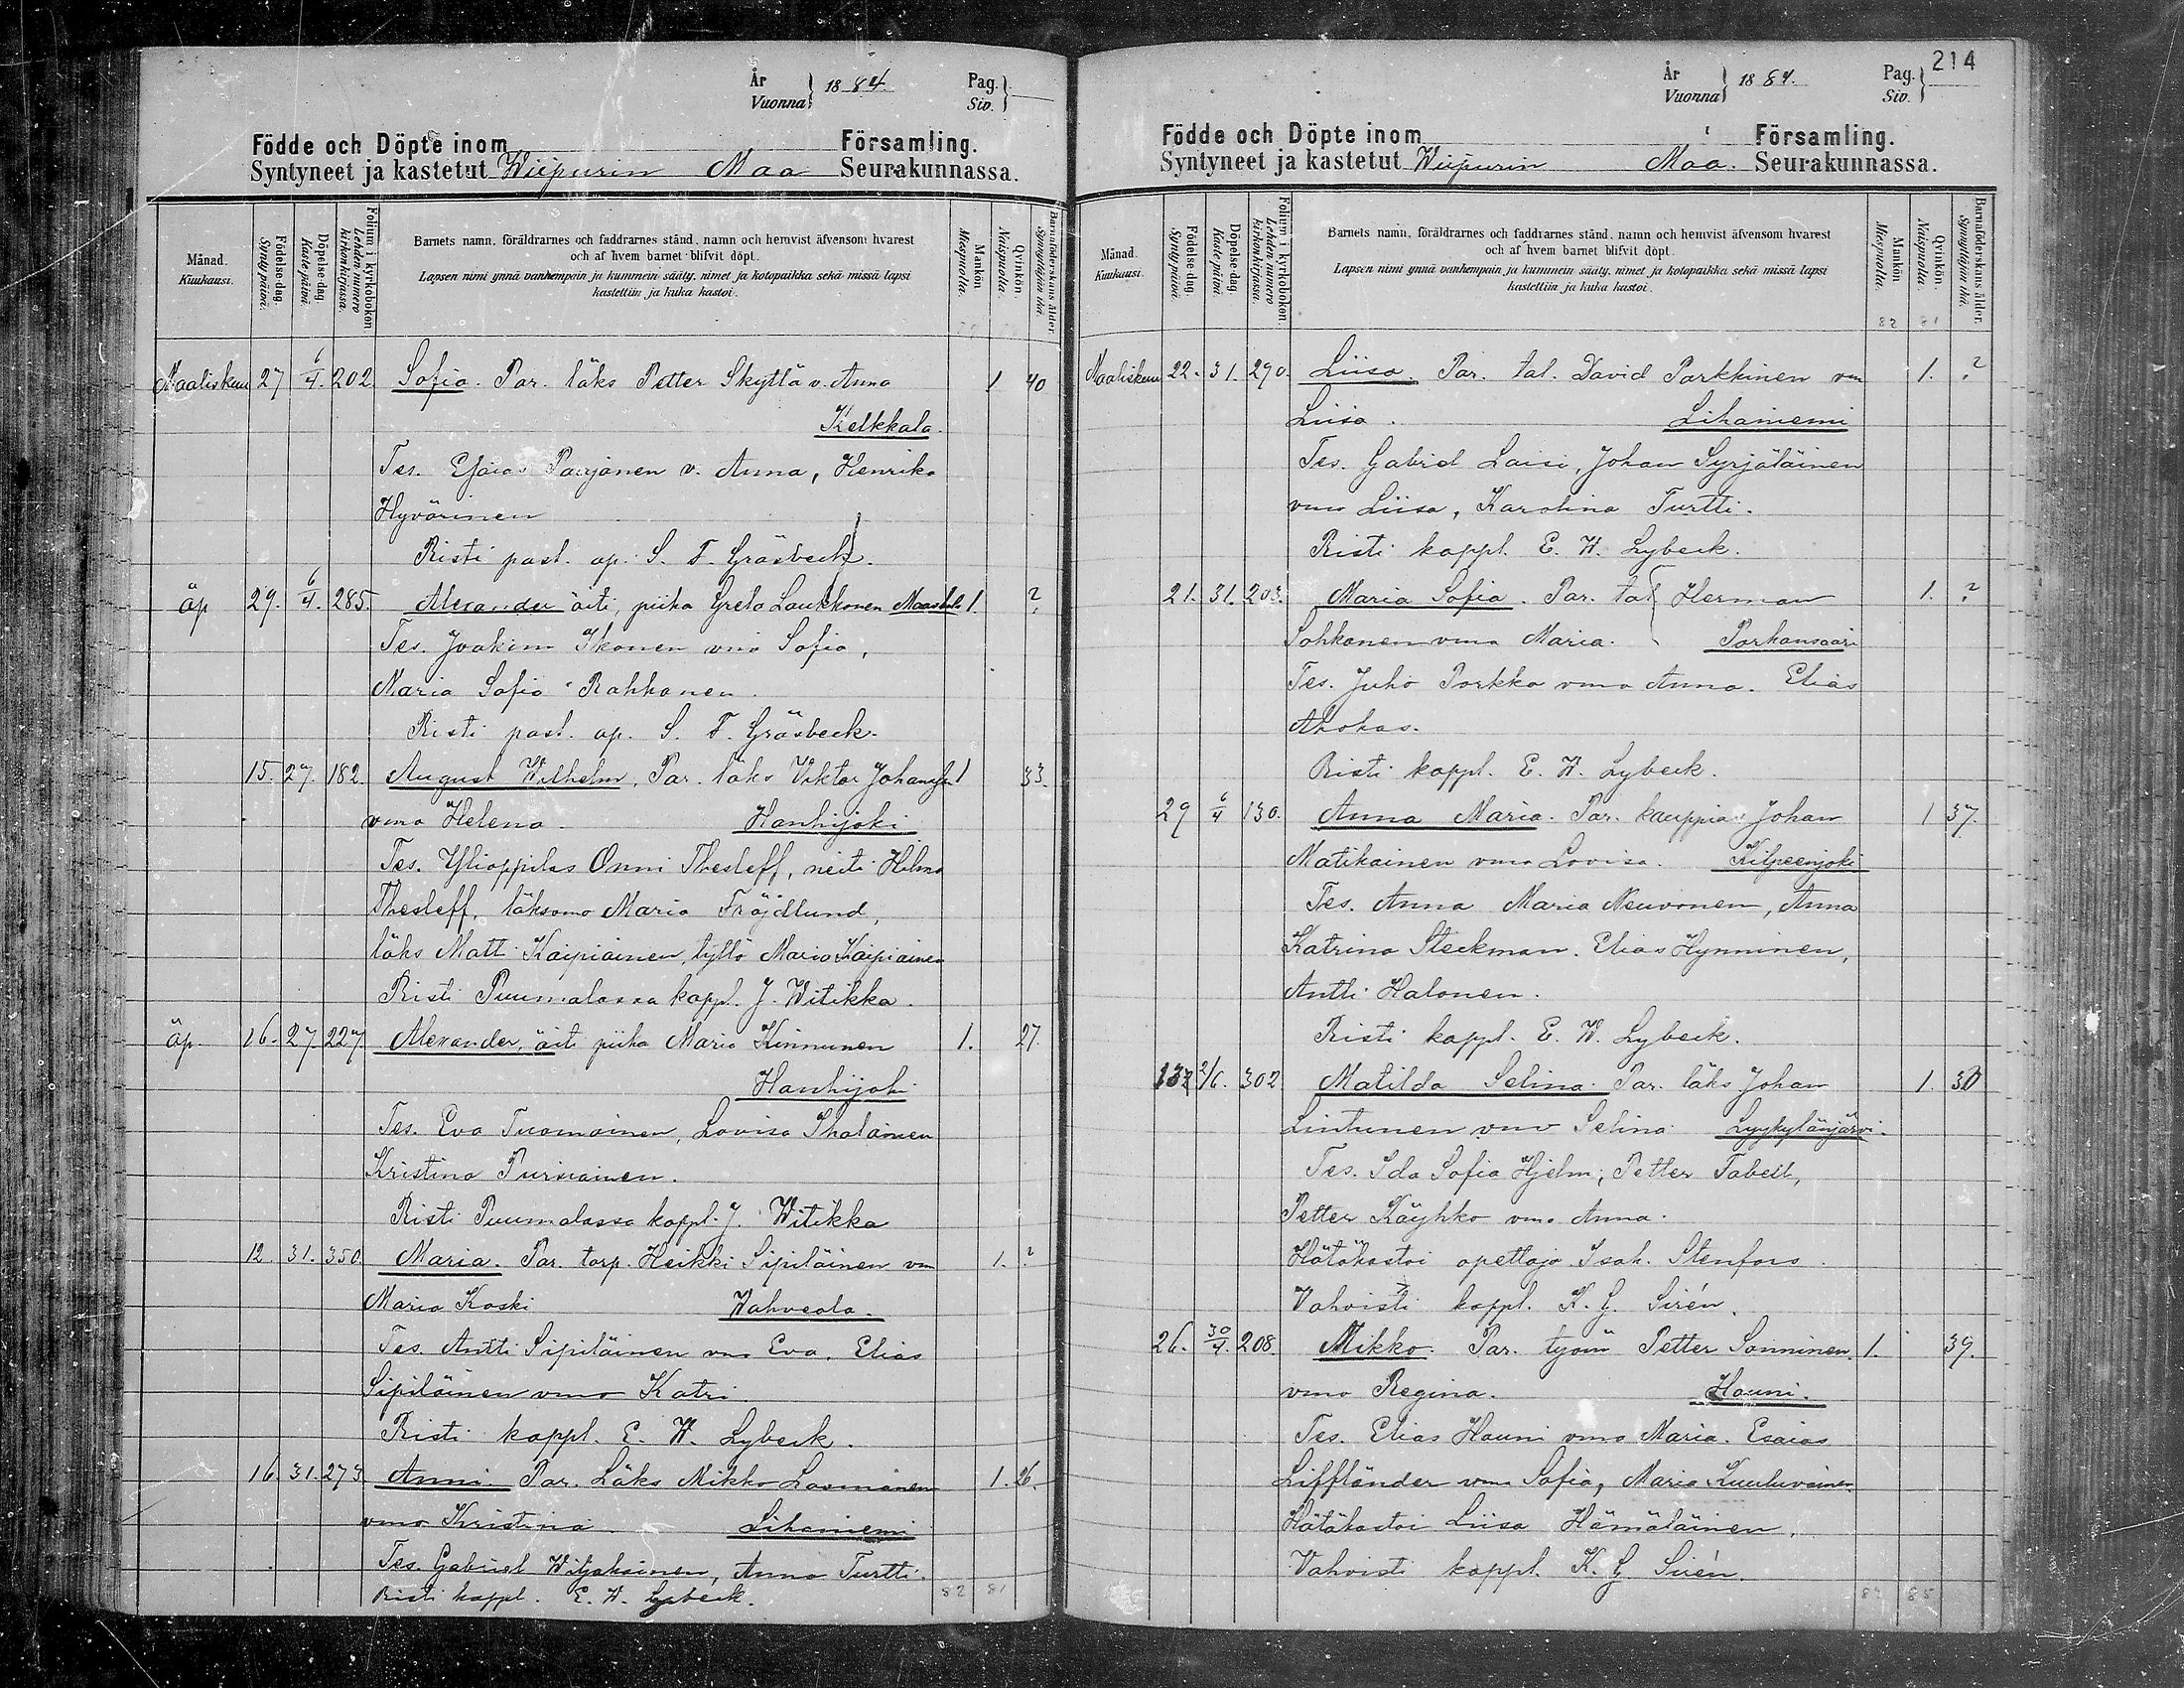 År
Vuonna } 1884. Pag.
Siv. }
Födde och Döpte inom Församling.
Syntyneet ja kastetut Wiipurin Maa Seurakunnassa.
Månad.
Kuukausi.
Födelse-dag.
Syntypäivä.
Döpelse-dag.
Kaste päivä.
Folium i kyrkoboken.
Lehden numero
kirkonkirjassa.
Barnets namn, föräldrarnes och faddrarnes stånd, namn och hemvist äfvensom hvarest
och af hvem barnet blifvit döpt.
Lapsen nimi ynnä vanhempain ja kummein sääty, nimet ja kotopaikka sekä missä lapsi
kastettiin ja kuka kastoi.
Mankön.
Miespuolia.
Qvinkön.
Naispuolia.
Barnaföderskans ålder.
Synnyttäjän ikä.
Maaliskuu 27 6/4. 202. Sofia. Par. läks Petter Skyttä v. Anna 1 40
Kelkkala.
Tes. Esaias Paajanen v. Anna, Henrika
Hyvärinen
Risti past. ap. S. F. Gräsbeck.
äp 29. 6/4. 285. Alexander äiti, piika Greta Laukkonen 1. ?
Tes. Joakim Ikonen vmo Sofia,
Maria Sofia Rahkonen.
Risti past. ap. S. F. Gräsbeck.
15. 27. 182. August Wilhelm, Par. läks Viktor 1 33.
vmo Helena. Hanhijoki
Tes. Ylioppilas Onni Thesleff, neiti Hilma
Thesleff, läksvmo Maria Fröjdlund,
läks Matti Kaipiainen, tyttö Maria Kaipiainen
Risti Puumalassa kappl. J. Witikka.
äp. 16. 27. 227 Alexander, äiti piika Maria Kinnunen 1. 27.
Hanhijoki
Tes. Eva Tuomainen, Lovisa Ihalainen
Kristina Pursiainen.
Risti Puumalassa kappl. J. Witikka
12. 31. 350. Maria. Par. torp. Heikki Sipiläinen vm 1. ?
Maria Koski Wahveala.
Tes. Antti Sipiläinen vmo Eva, Elias
Sipiläinen vmo Katri
Risti kappl. E. W. Lybeck.
16. 31. 273. Anni. Par. Läks Mikko 1. 26.
vmo Kristina Lihaniemi
Tes. Gabriel Wiljakainen, Anna Turtti.
Risti kappl. E. W. Lybeck.
82 81
214
År
Vuonna } 1884. Pag.
Siv. }
Födde och Döpte inom Församling.
Syntyneet ja kastetut Wiipurin Maa. Seurakunnassa.
Månad.
Kuukausi.
Födelse-dag.
Syntypäivä.
Döpelse-dag.
Kaste päivä.
Folium i kyrkoboken.
Lehden numero
kirkonkirjassa.
Barnets namn, föräldrarnes och faddrarnes stånd, namn och hemvist äfvensom hvarest
och af hvem barnet blifvit döpt.
Lapsen nimi ynnä vanhempain ja kummein sääty, nimet ja kotopaikka sekä missä lapsi
kastettiin ja kuka kastoi.
Mankön.
Miespuolia.
Qvinkön.
Naispuolia.
Barnaföderskans ålder.
Synnyttäjän ikä.
82 81
Maaliskuu 22. 31. 290. Liisa. Par. tal. David Parkkinen vm 1. ?
Liisa. Lihaniemi
Tes. Gabriel Laisi, Johan Syrjäläinen
vmo Liisa, Karolina Turtti.
Risti kappl. E. W. Lybeck.
21. 31. 203. Maria Sofia. Par. tal. Herman 1. ?
Sohkanen vmo Maria. Porkansaari
Tes. Juho Porkka vmo Anna. Elias
Ahokas.
Risti kappl. E. W. Lybeck.
29 6/4 130. Anna Maria. Par. kauppias Johan 1 37.
Matikainen vmo Lovisa. Kilpeenjoki
Tes. Anna Maria Neuvonen, Anna
Katrina Steckman. Elias Hynninen,
Antti Halonen.
Risti kappl. E. W. Lybeck.
302. Matilda Selina. Par. läks Johan 1. 30
Lintunen vmo Selina Lyykylänjärvi.
Tes. Ida Sofia Hjelm, Petter Tabell,
Petter Käyhkö vmo Anna.
Hätäkastoi opettaja Isak. Stenfors.
Vahvisti kappl. K. G. Sirén.
26. 30/4. 208. Mikko. Par. työm Petter Sonninen. 1. 39.
vmo Regina. Hauni.
Tes. Elias Hauni vmo Maria. Esaias
Liffländer vmo Sofia, Maria Kuuluvainen
Hätäkastoi Liisa Hämäläinen.
Vahvisti kappl. K. G. Sirén.
83 85